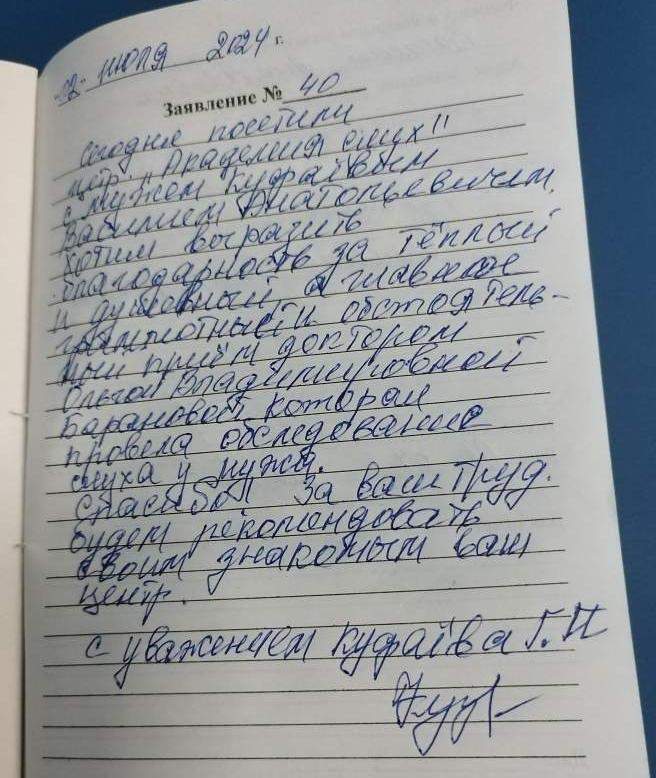 "02" июля 2024 г.
Заявление № 40
Сегодня посетили
центр „Академия слух"
с мужем Куфаёвым
Василием Анатольевичем.
Хотим выразить
благодарность за тёплый
и душевный, а главное
грамотный и обстоятель-
ный приём доктором
Ольгой Владимировной
Барановой, которая
провела обследование
слуха у мужа.
Спасибо за ваш труд.
будем рекомендовать
своим знакомым ваш
центр.
с уважением Куфаёва Г.И